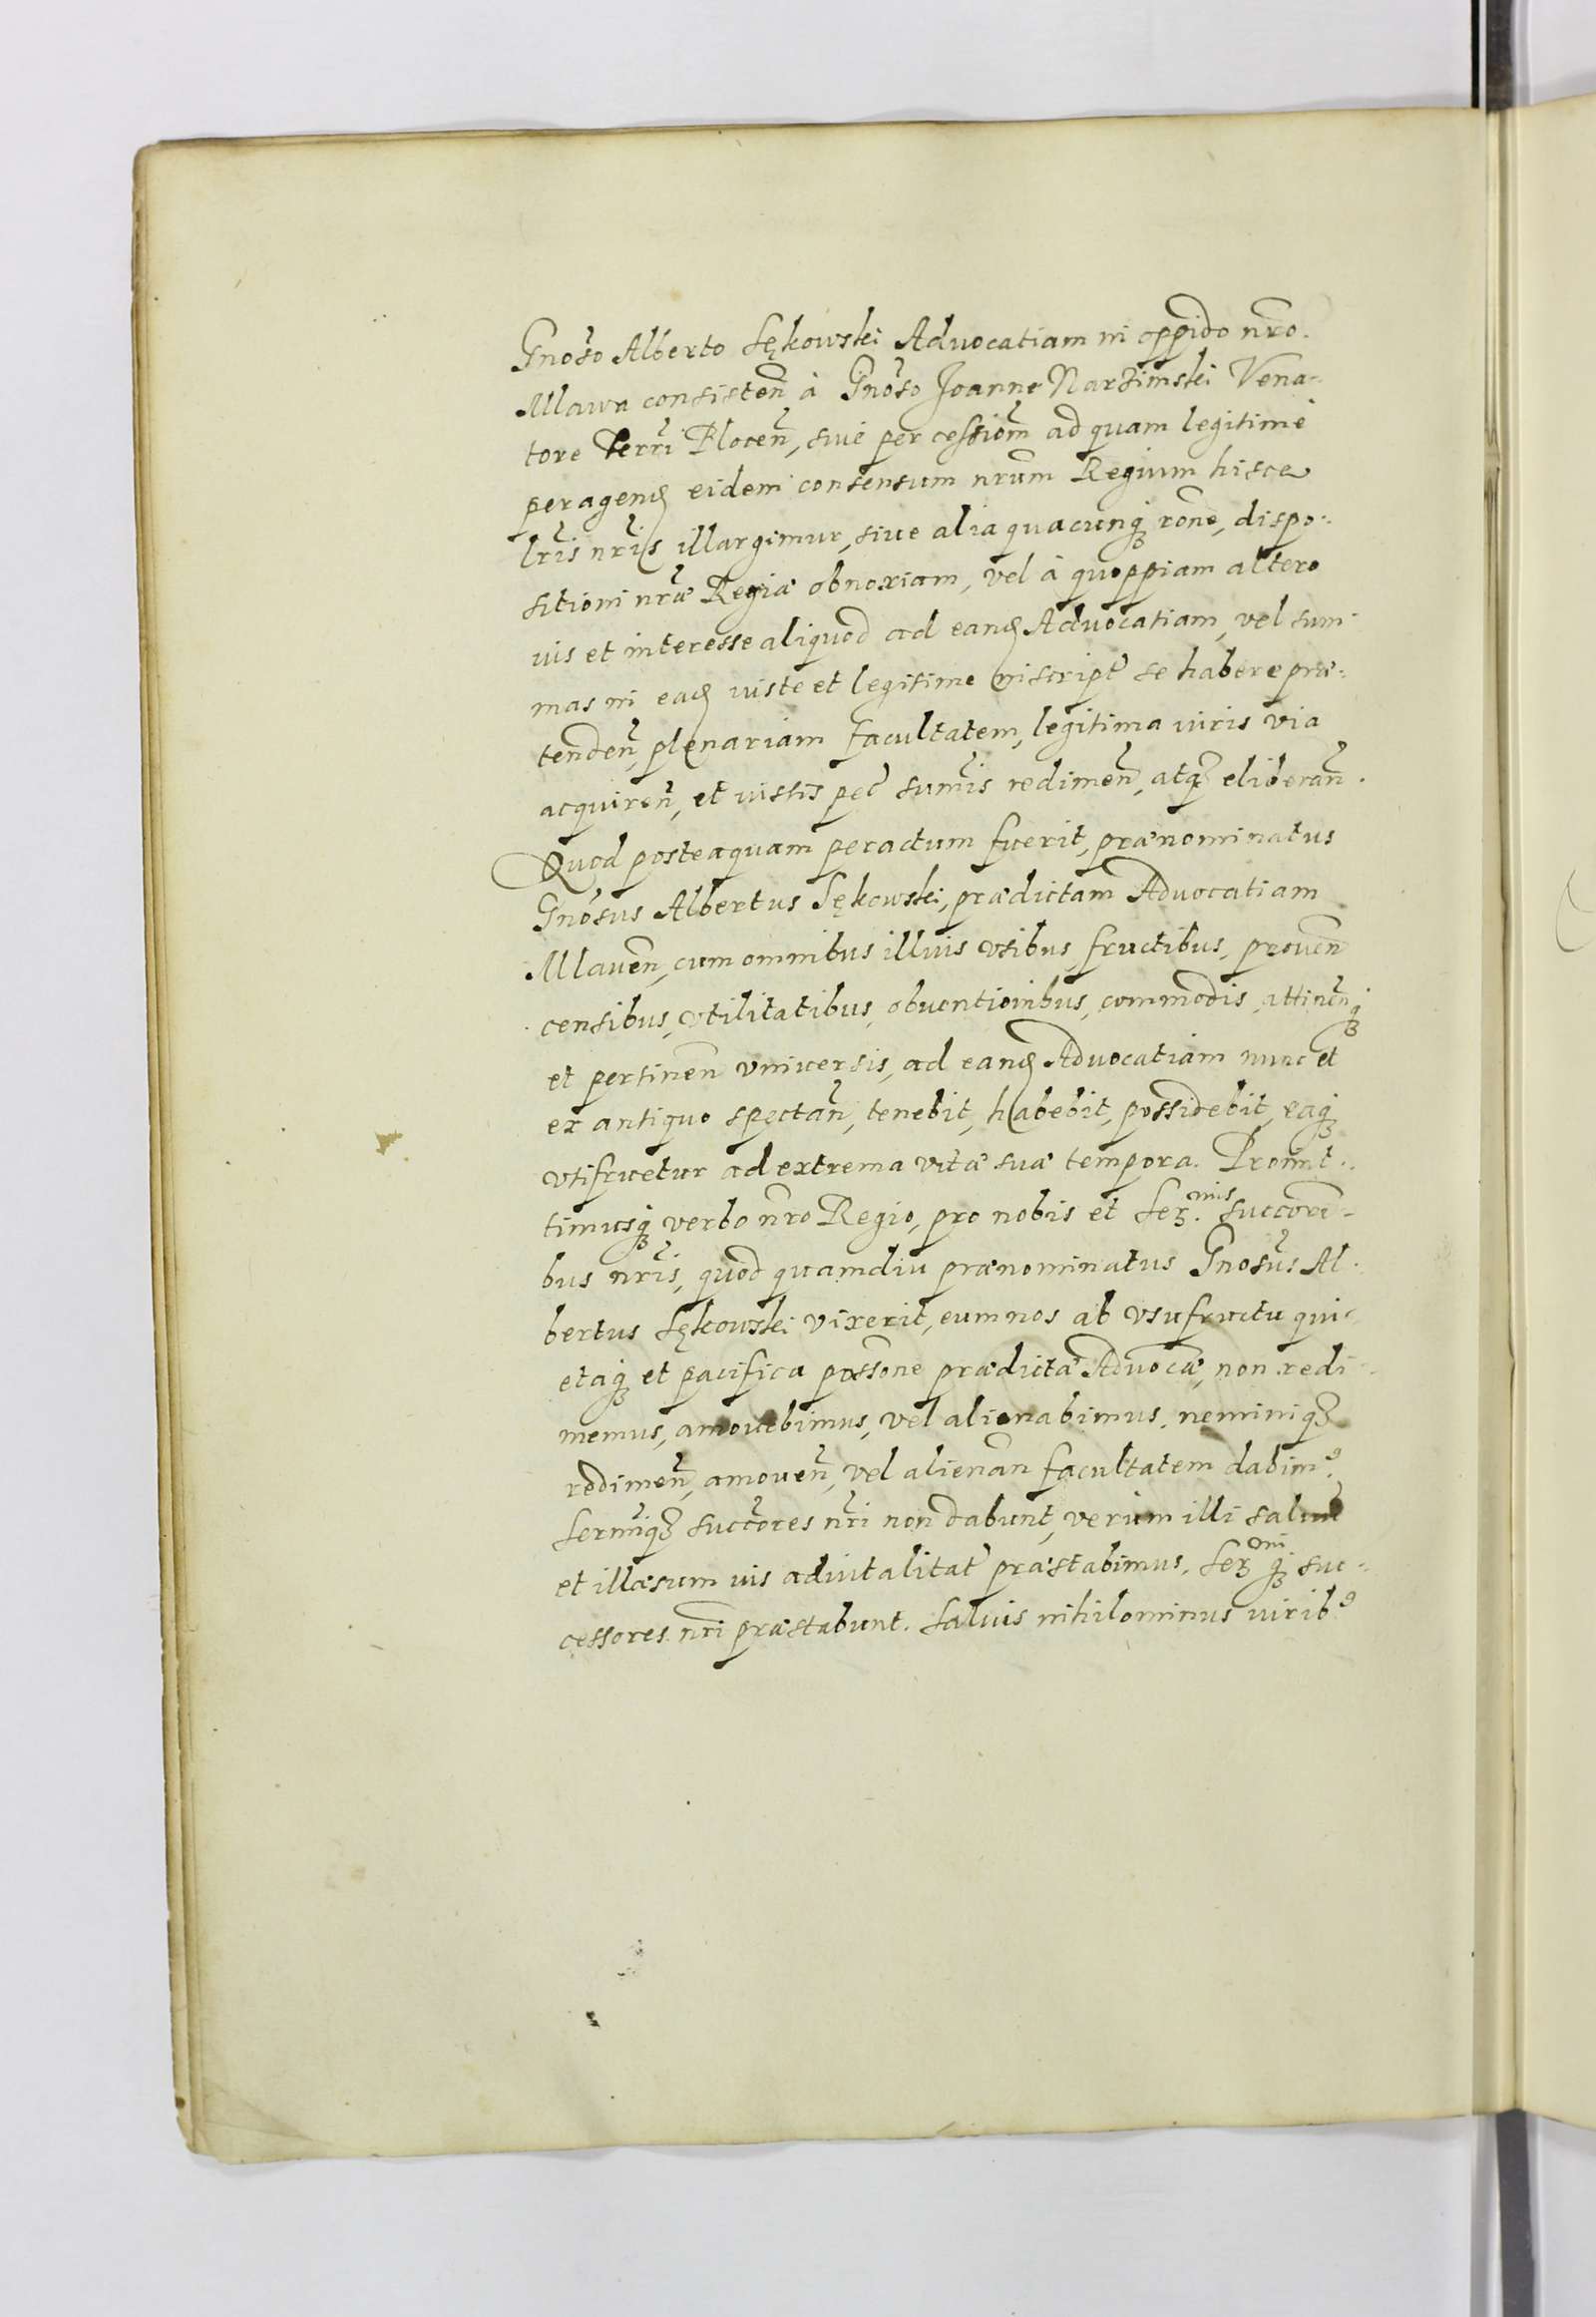 Gnoso Alberto Sękowski Advocatiam in oppido nro.
Mlawa consisten à Gnoso Joanne Narzimski Vena-
tore Terri Plocen, sive per cessiom ad quam legitimè
peragend eidem consensum nrum Regium hisce
lris nris illargimur, sive alia quacunq rone, dispo-
sitioni nræ Regiæ obnoxiam, vel à quoppiam altero
ius et interesse aliquod ad eand Advocatiam, vel sum-
mas in ead iuste et legitime inscript se habere præ-
tenden, plenariam facultatem, legitima iuris via
acquiren, et iustis pec sumis redimen, atq eliberan.
Quod posteaquam peractum fuerit, prænominatus
Gnosus Albertus Sękowski, prædictam Advocatiam
Mlaven, cum omnibus illius vsibus fructibus, proven
censibus, vtilitatibus, obventionibus, commodis, attinenq
et pertinen vniversis, ad eand Advocatiam nunc et
ex antiquo spectan, tenebit, habebit, possidebit, eaq
vtifruetur ad extrema vitæ suæ tempora. Promit-
timusq verbo nro Regio, pro nobis et Ser.mis Succori-
bus nris, quod quamdiu prænominatus Gnosus Al-
bertus Sękowski vixerit, eum nos ab vsufructu qui-
etaq et pacifica possone prædictæ Advocæ, non redi-
memus, amovebimus, vel alienabimus, neminiq
redimen, amoven, vel alienan facultatem dabim9.
Sermiq succores nri non dabunt, verùm illi salvu
et illæsum ius advitalitat præstabimus. Sermi q suc-
cessores nri præstabunt. Salvis nihilominus iurib9